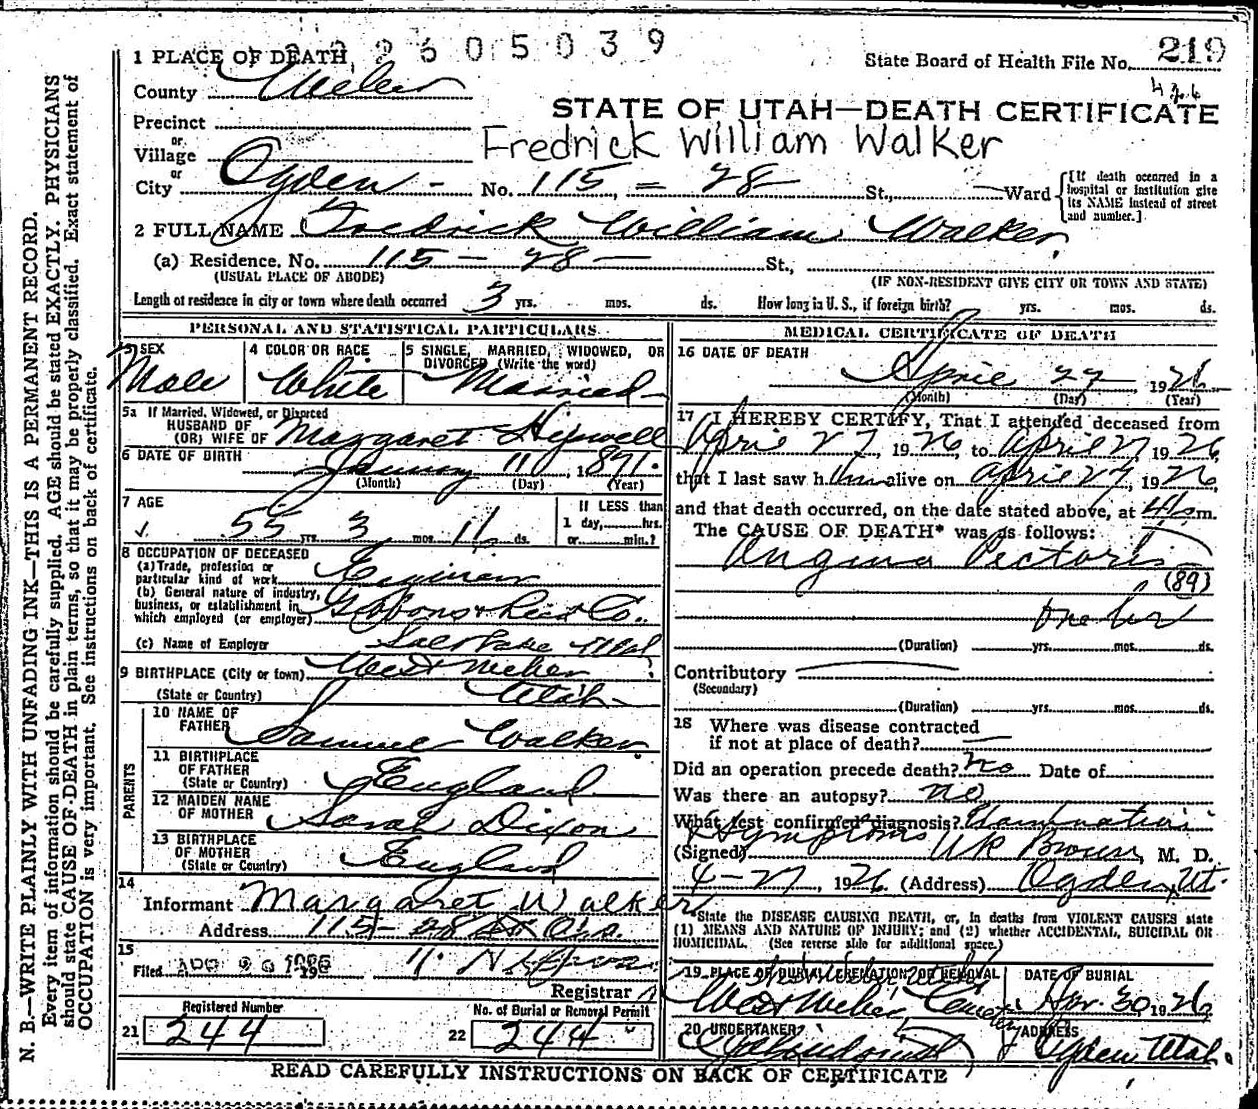 2605039
1 PLACE OF DEATH
State Board of Health File No. 219
County Weber
STATE OF UTAH—DEATH CERTIFICATE
Precinct
or
Village
Fredrick William Walker
or
City Ogden - No. 115 = 28 St., Ward
[If death occurred in a
hospital or institution give
its NAME instead of street
and number.]
2 FULL NAME Fredrick William Walker
(a) Residence. No. 115 - 28 - St.,
(USUAL PLACE OF ABODE)
(IF NON-RESIDENT GIVE CITY OR TOWN AND STATE)
Length of residence in city or town where death occurred 3 yrs. mos. ds. How long in U. S., if foreign birth? yrs. mos. ds.
PERSONAL AND STATISTICAL PARTICULARS
3 SEX
Male
4 COLOR OR RACE
White
5 SINGLE, MARRIED, WIDOWED, OR
DIVORCED (Write the word)
Married
5a If Married, Widowed, or Divorced
HUSBAND OF
(OR) WIFE OF Margaret
6 DATE OF BIRTH January 11, 1871.
(Month) (Day) (Year)
7 AGE
55 yrs. 3 mos. 16 ds.
If LESS than
1 day, hrs.
or min.?
8 OCCUPATION OF DECEASED
(a) Trade, profession or
particular kind of work Engineer
(b) General nature of industry,
business, or establishment in
which employed (or employer) Gibbons & Reed Co.
(c) Name of Employer Salt Lake Utah
9 BIRTHPLACE (City or town) West Weber
(State or Country) Utah
PARENTS
10 NAME OF
FATHER Samuel Walker
11 BIRTHPLACE
OF FATHER
(State or Country) England
12 MAIDEN NAME
OF MOTHER Sarah Dixon
13 BIRTHPLACE
OF MOTHER
(State or Country) England
14
Informant Margaret Walker
Address 115- 28 St
15
Filed 192
Registrar
Registered Number
21 244
No. of Burial or Removal Permit
22 244
MEDICAL CERTIFICATE OF DEATH
16 DATE OF DEATH
April 27 1926
(Month) (Day) (Year)
17 I HEREBY CERTIFY, That I attended deceased from
April 27, 1926, to April 27 1926,
that I last saw him alive on April 27, 1926,
and that death occurred, on the date stated above, at m.
The CAUSE OF DEATH* was as follows:
Angina Pectoris
(89)
one hr
(Duration) yrs. mos. ds.
Contributory
(Secondary)
(Duration) yrs. mos. ds.
18 Where was disease contracted
if not at place of death?
Did an operation precede death? no Date of
Was there an autopsy? no
What test confirmed diagnosis? Examination
Symptoms
(Signed) Brown, M. D.
4-27, 1926 (Address) Ogden, Ut.
*State the DISEASE CAUSING DEATH, or, in deaths from VIOLENT CAUSES state
(1) MEANS AND NATURE OF INJURY; and (2) whether ACCIDENTAL, SUICIDAL OR
HOMICIDAL. (See reverse side for additional space.)
19 PLACE OF BURIAL, CREMATION, OR REMOVAL
West Weber Cemetery
DATE OF BURIAL
Apr. 30 1926
20 UNDERTAKER
ADDRESS
Ogden Utah.
READ CAREFULLY INSTRUCTIONS ON BACK OF CERTIFICATE
N. B.—WRITE PLAINLY WITH UNFADING INK—THIS IS A PERMANENT RECORD.
Every item of information should be carefully supplied. AGE should be stated EXACTLY. PHYSICIANS
should state CAUSE OF DEATH in plain terms, so that it may be properly classified. Exact statement of
OCCUPATION is very important. See instructions on back of certificate.